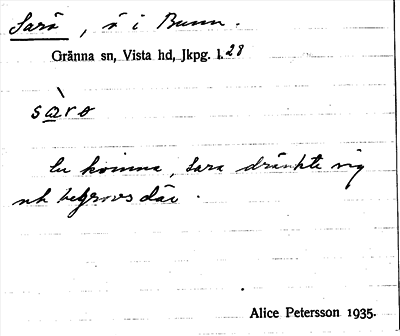 Sarö, ö i Bunn.
Gränna sn, Vista hd, Jkpg. l. 28
sàrө
En kvinna, Sara dränkte sig
och begrovs där.
Alice Petersson 1935.